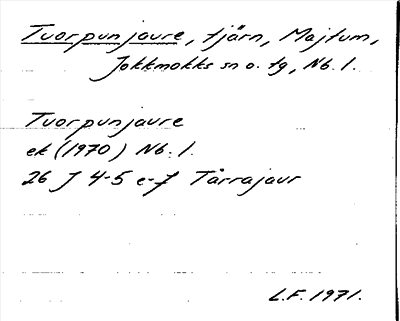 Tuorpunjaure, tjärn, Majtum,
Jokkmokks sn o. tg, Nb. l.
Tuorpunjaure
ek (1970) Nb. l.
26 J 4-5 e-f Tårrajaur
L.F. 1971.